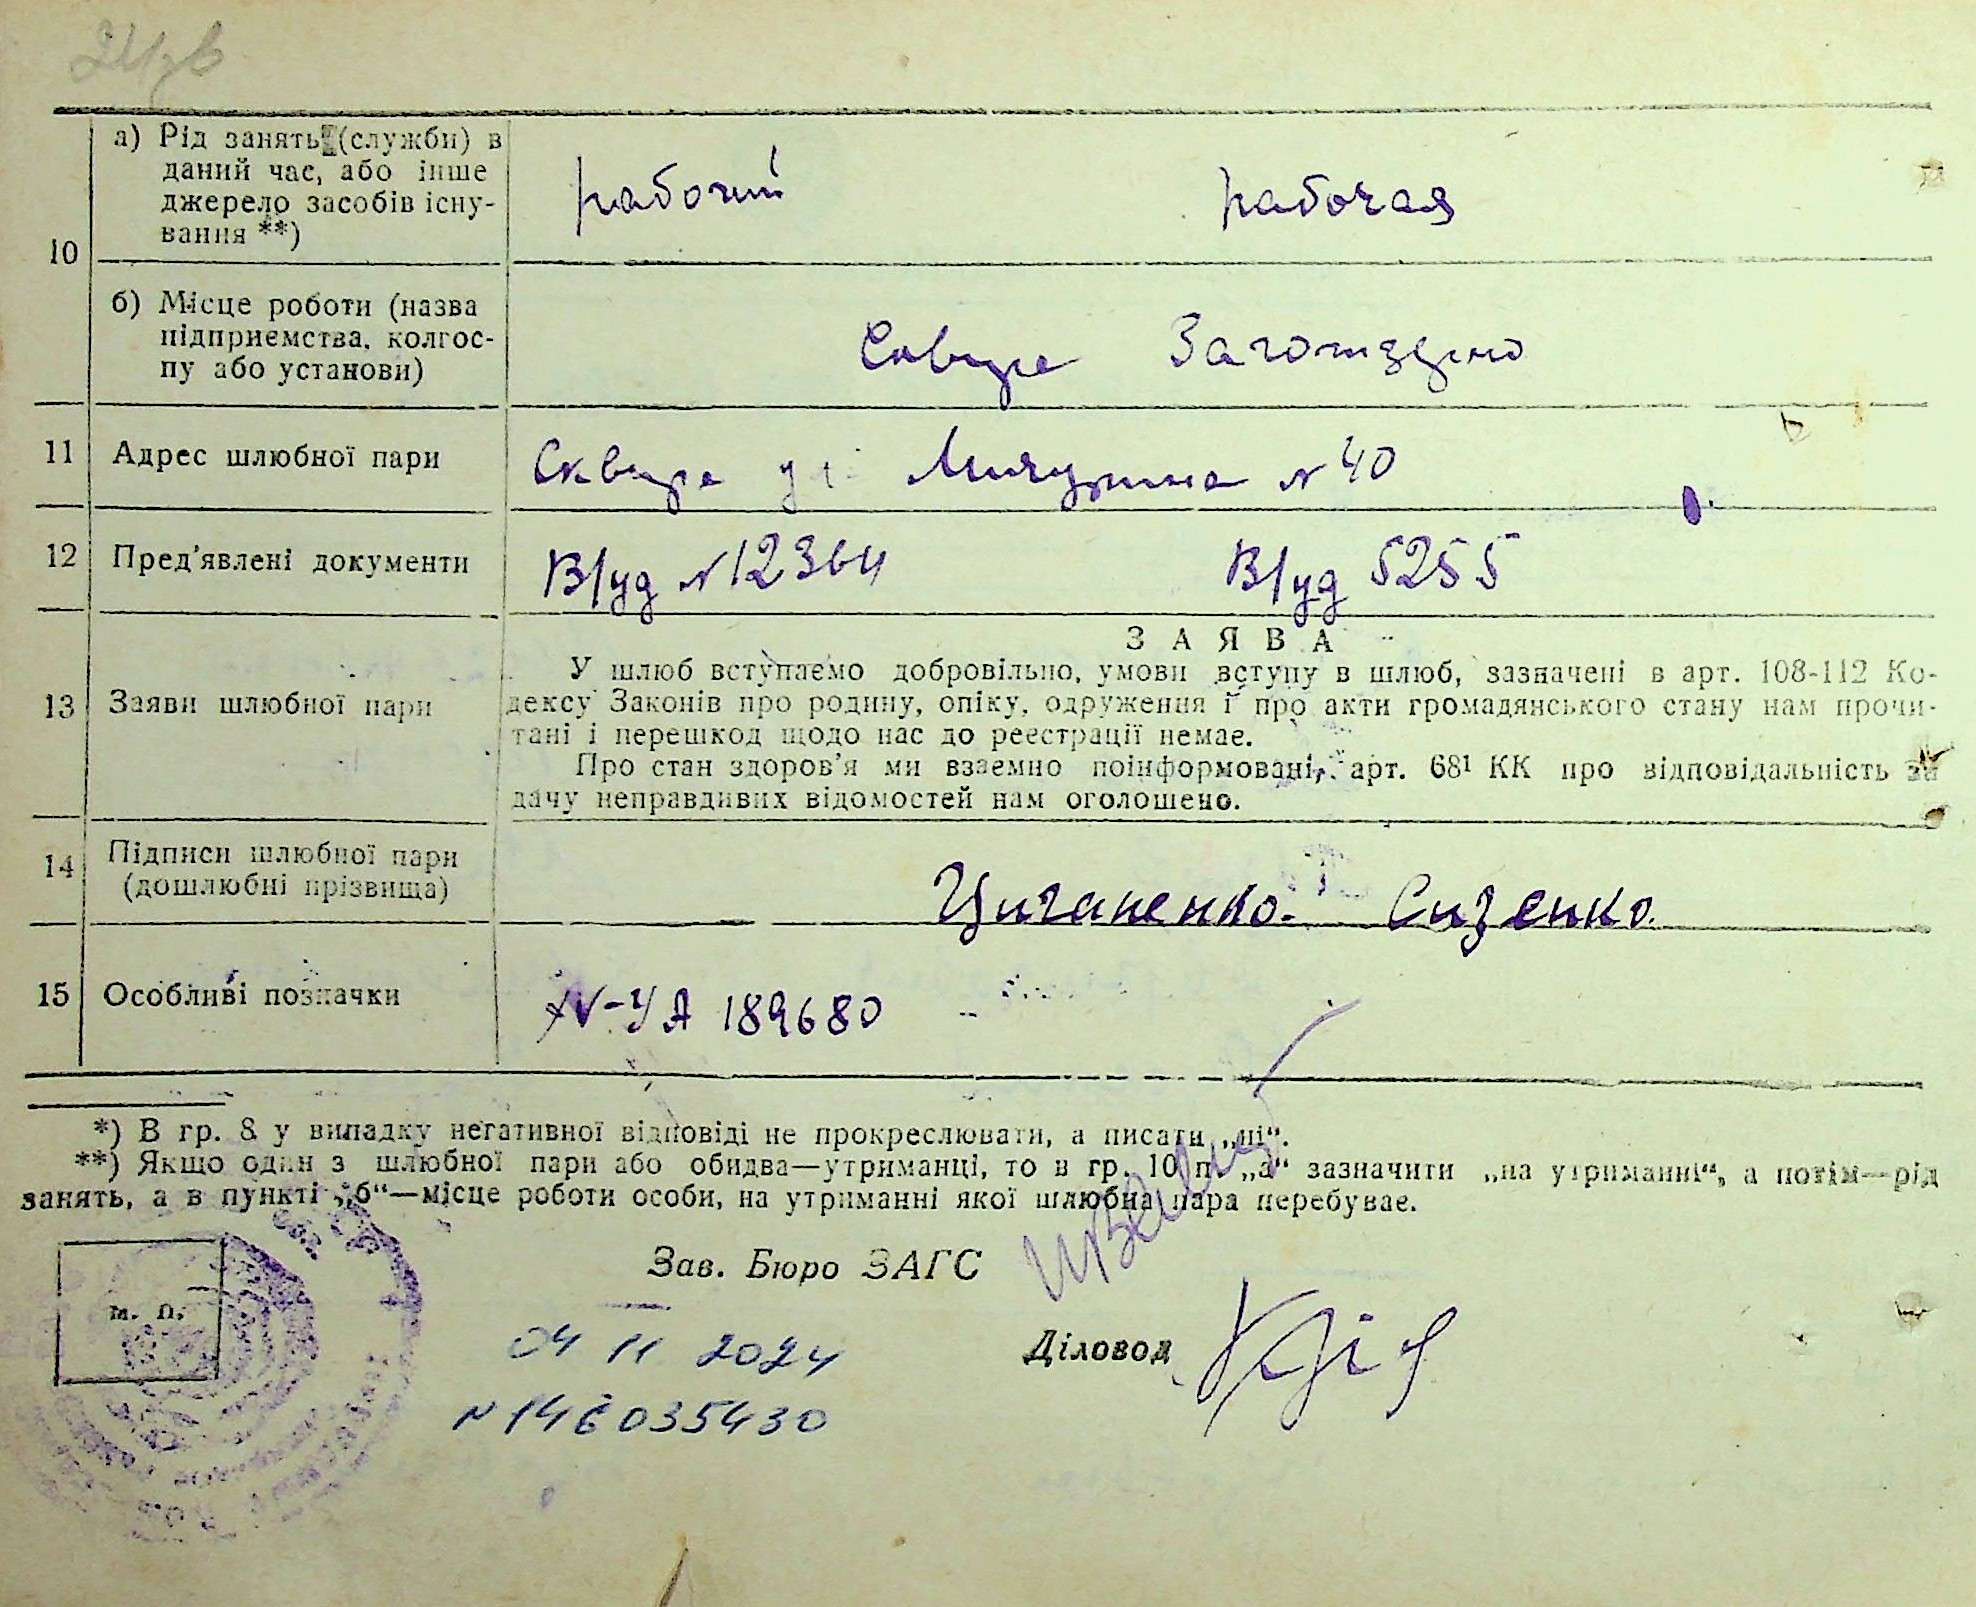 а) Рід занять (служби) в
даний час, або інше
джерело засобів існу-
вання **)
рабочий рабочая
10
б) Місце роботи (назва
підприємства, колгос-
пу або установи)
Сквира Заготзерно
11 Адрес шлюбної пари Сквира ул. Мичурина N 40
12 Пред'явлені документи В/уд N 12364 В/уд 5255
З А Я В А
У шлюб вступаємо добровільно, умови вступу в шлюб, зазначені в арт. 108-112 Ко-
дексу Законів про родину, опіку, одруження і про акти громадянського стану нам прочи-
тані і перешкод щодо нас до реєстрації немає.
13 Заяви шлюбної пари
Про стан здоров'я ми взаємно поінформовані, арт. 68¹ КК про відповідальність за
дачу неправдивих відомостей нам оголошено.
14 Підписи шлюбної пари
(дошлюбні прізвища)
Циганенко. Сизенко.
15 Особливі позначки IV-УА 189680
*) В гр. 8 у випадку негативної відповіді не прокреслювати, а писати „ні“.
**) Якщо один з шлюбної пари або обидва—утриманці, то в гр. 10 п. „а“ зазначити „на утриманні“, а потім—рід
занять, а в пункті „б“—місце роботи особи, на утриманні якої шлюбна пара перебуває.
Зав. Бюро ЗАГС
м. п.
04 11 2024
Діловод
N 146035430